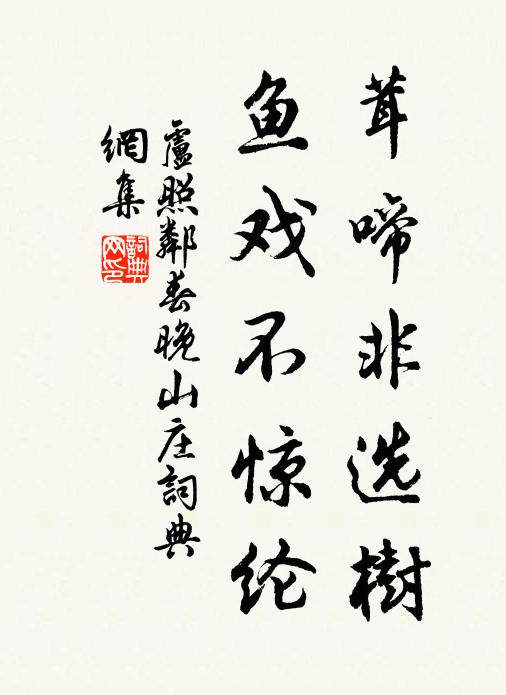 茸啼非选樹
鱼戏不惊纶
盧照鄰春晚山庄詞典
網集
詞典
网印